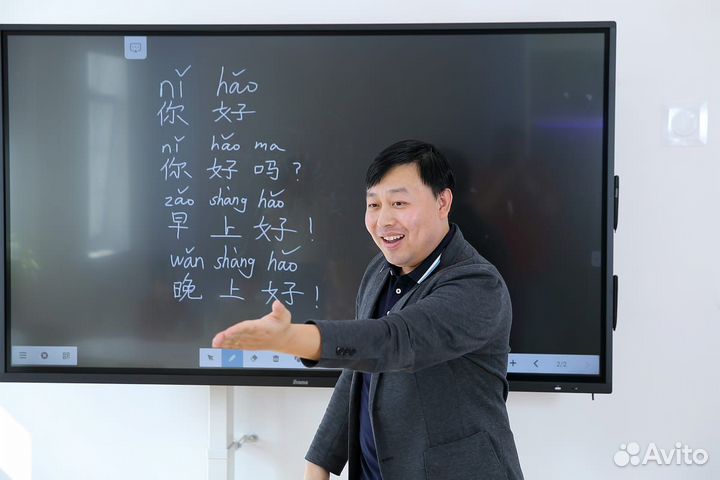 nǐ hǎo
你 好
nǐ hǎo ma
你 好 吗？
zǎo shàng hǎo
早 上 好！
wǎn shàng hǎo
晚 上 好！
2/2
Avito